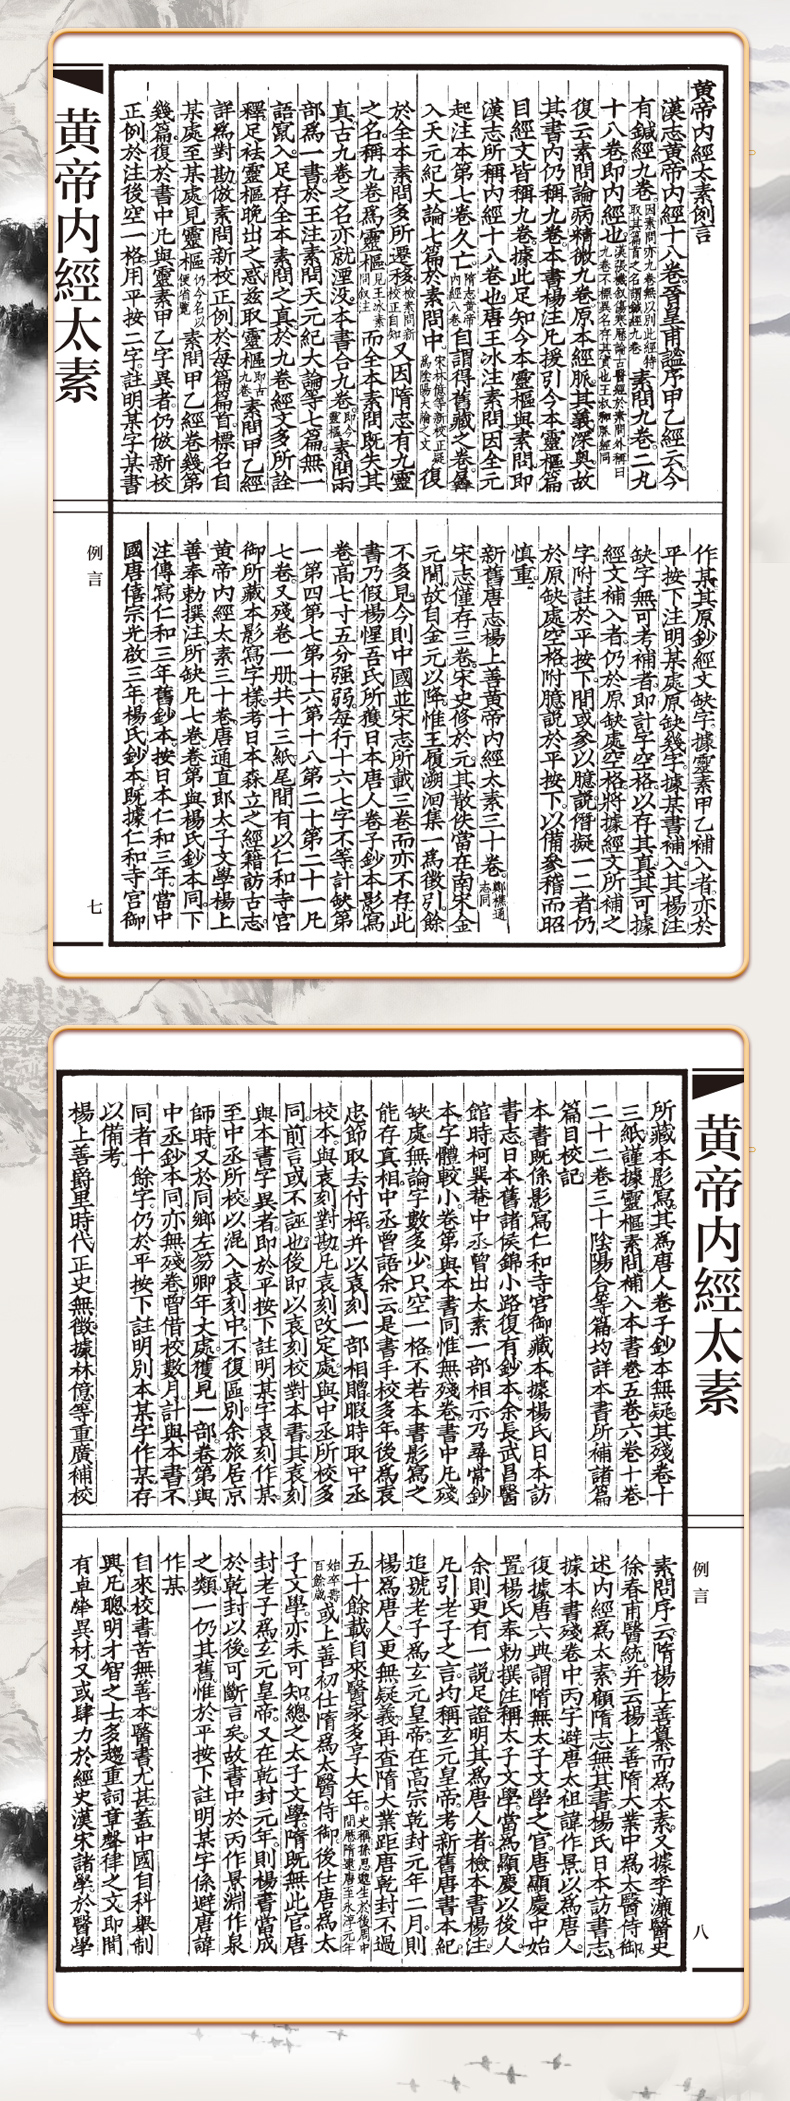 黃帝內經太素
例言
七
黃帝內經太素例言
漢志黃帝內經十八卷晉皇甫謐序甲乙經云今
有鍼經九卷因素問亦九卷無以別此經特取其篇首之名謂鍼經九卷素問九卷二九
十八卷即內經也
復云素問論病精微九卷原本經脈其義深奧故
其書內仍稱九卷本書楊注凡援引今本靈樞篇
目經文皆稱九卷據此足知今本靈樞與素問即
漢志所稱內經十八卷也唐王冰注素問因全元
起注本第七卷久亡隋志黃帝內經八卷自謂得舊藏之卷纂
入天元紀大論七篇於素問中宋林億等新校正疑為陰陽大論之文復
於全本素問多所遷移檢素問新校正自知又因隋志有九靈
之名稱九卷為靈樞見王冰素問敘注而全本素問既失其
真古九卷之名亦就湮没本書合九卷即今靈樞素問兩
部為一書於王注素問天元紀大論等七篇無一
語竄入足存全本素問之真於九卷經文多所詮
釋足袪靈樞晚出之惑茲取靈樞即古九卷素問甲乙經
詳為對勘倣素問新校正例於每篇篇首標名自
某處至某處見靈樞仍今名以便省覽素問甲乙經卷幾第
幾篇復於書中凡與靈素甲乙字異者仍倣新校
正例於注後空一格用平按二字註明某字某書
作某其原鈔經文缺字據靈素甲乙補入者亦於
平按下注明某處原缺幾字據某書補入其楊注
缺字無可考補者即計字空格以存其真其可據
經文補入者仍於原缺處空格將據經文所補之
字附註於平按下間或參以臆說僭擬一二者仍
於原缺處空格附臆說於平按下以備參稽而昭
慎重
新舊唐志楊上善黃帝內經太素三十卷鄭樵通志同
宋志僅存三卷宋史修於元其散佚當在南宋金
元間故自金元以降惟王履溯洄集一為徵引餘
不多見今則中國並宋志所載三卷而亦不存此
書乃假楊惺吾氏所獲日本唐人卷子鈔本影寫
卷高七寸五分强弱每行十六七字不等計缺第
一第四第七第十六第十八第二十第二十一凡
七卷又殘卷一册共十三紙尾間有以仁和寺宮
御所藏本影寫字樣考日本森立之經籍訪古志
黃帝內經太素三十卷唐通直郎太子文學楊上
善奉勅撰注所缺凡七卷卷第與楊氏鈔本同下
注傳寫仁和三年舊鈔本按日本仁和三年當中
國唐僖宗光啟三年楊氏鈔本既據仁和寺宮御
黃帝內經太素
例言
八
所藏本影寫其為唐人卷子鈔本無疑其殘卷十
三紙謹據靈樞素問補入本書卷五卷六卷十卷
二十二卷三十陰陽合等篇均詳本書所補諸篇
篇目校記
本書既係影寫仁和寺宮御藏本據楊氏日本訪
書志日本舊諸侯錦小路復有鈔本余長武昌醫
館時柯巽菴中丞曾出太素一部相示乃尋常鈔
本字體較小卷第與本書同惟無殘卷書中凡殘
缺處無論字數多少只空一格不若本書影寫之
能存真相中丞曾語余云是書手校多年後為袁
忠節取去付梓并以袁刻一部相贈暇時取中丞
校本與袁刻對勘凡袁刻改定處與中丞所校多
同前言或不誣也後即以袁刻校對本書其袁刻
與本書字異者即於平按下註明某字袁刻作某
至中丞所校以混入袁刻中不復區別余旅居京
師時又於同鄉左笏卿年丈處獲見一部卷第與
中丞鈔本同亦無殘卷曾借校數月計與本書不
同者十餘字仍於平按下註明別本某字作某存
以備考
楊上善爵里時代正史無徵據林億等重廣補校
素問序云隋楊上善纂而為太素又據李濂醫史
徐春甫醫統并云楊上善隋大業中為太醫侍御
述內經為太素顧隋志無其書楊氏日本訪書志
據本書殘卷中丙字避唐太祖諱作景以為唐人
復據唐六典謂隋無太子文學之官唐顯慶中始
置楊氏奉勅撰注稱太子文學當為顯慶以後人
余則更有一說足證明其為唐人者檢本書楊注
凡引老子之言均稱玄元皇帝考新舊唐書本紀
追號老子為玄元皇帝在高宗乾封元年二月則
楊為唐人更無疑義再查隋大業距唐乾封不過
五十餘載自來醫家多享大年史稱孫思邈生於後周中間歷隋唐至永淳元年
始卒壽百餘歲或上善初仕隋為太醫侍御後仕唐為太
子文學亦未可知總之太子文學隋既無此官唐
封老子為玄元皇帝又在乾封元年則楊書當成
於乾封以後可斷言矣故書中於丙作景淵作泉
之類一仍其舊惟於平按下註明某字係避唐諱
作某
自來校書苦無善本醫書尤甚蓋中國自科舉制
興凡聰明才智之士多趨重詞章聲律之文即間
有卓犖異材又或肆力於經史漢宋諸學於醫學